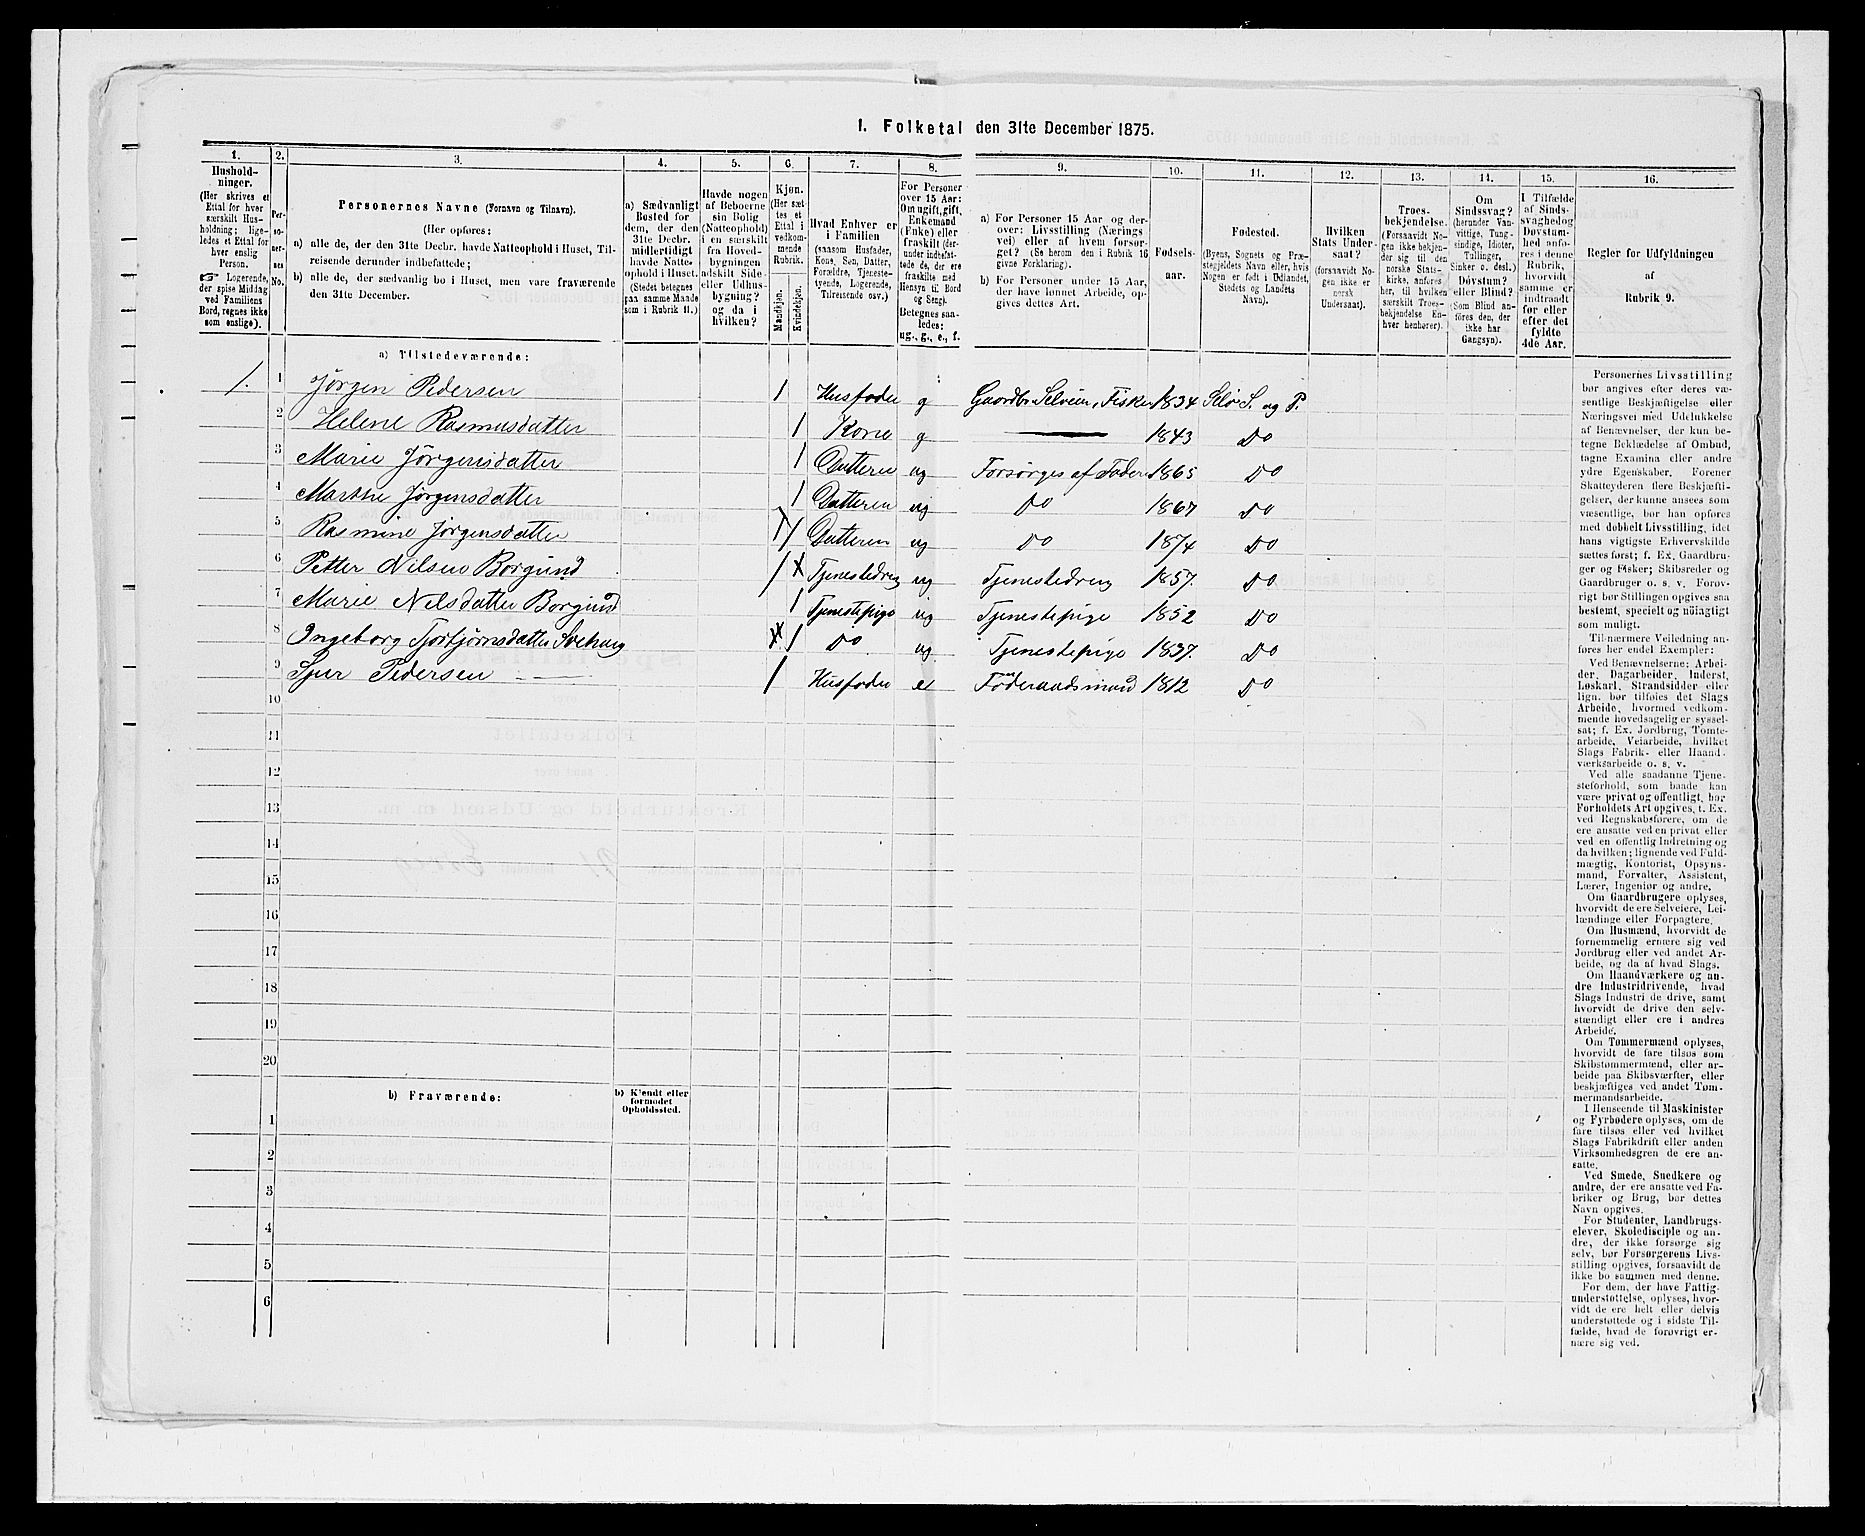 1. Folketal den 31te December 1875.
1. 2. 3. 4. 5. 6. 7. 8. 9. 10. 11. 12. 13. 14. 15. 16.
Hushold-
ninger.
(Her skrives et
Ettal for hver
særskilt Hus-
holdning; lige-
ledes et Ettal for
hver enslig
Person.
☞ Logerende,
der spise Middag
ved Familiens
Bord, regnes ikke
som enslige).
Per-
so-
ner-
nes
No.
Personernes Navne (Fornavn og Tilnavn).
(Her opføres:
a) alle de, der den 31te Decbr. havde Natteophold i Huset, Til-
reisende derunder indbefattede;
b) alle de, der sædvanlig bo i Huset, men vare fraværende
den 31te December.
a) Sædvanligt
Bosted for
dem, der den
31te Decbr.
midlertidigt
havde Natte-
ophold i Huset.
(Stedet betegnes
paa samme Maade
som i Rubrik 11.)
Havde nogen
af Beboerne
sin Bolig
(Natteophold)
i en særskilt
fra Hoved-
bygningen
adskilt Side-
eller Udhus-
bygning?
og da i
hvilken?
Kjøn.
(Her sæt-
tes et
Ettal i
vedkom-
mende
Rubrik.
Mandkjøn.
Kvindekjøn.
Hvad Enhver er
i Familien
(saasom Husfader,
Kone, Søn, Datter,
Forældre, Tjeneste-
tyende, Logerende,
Tilreisende osv.)
For Personer
over 15 Aar:
Om ugift, gift,
Enkemand
(Enke) eller
fraskilt (der-
under indbefat-
tede de, der ere
fraskilte med
Hensyn til Bord
og Seng).
Betegnes saa-
ledes:
ug., g., e., f.
a) For Personer 15 Aar og der-
over: Livsstilling (Nærings
vei) eller af hvem forsør-
get? (Se herom den i Rubrik 16
givne Forklaring).
b) For Personer under 15 Aar,
der have lønnet Arbeide, op-
gives dettes Art.
Fødsels-
aar.
Fødested.
(Byens, Sognets og Præ-
stegjeldets Navn eller, hvis
Nogen er født i Udlandet,
Stedets og Landets
Navn).
Hvilken
Stats Under-
saat?
(forsaavidt No-
gen ikke er
norsk
Undersaat).
Troes-
bekjendelse.
(Forsaavidt No-
gen ikke bekjen-
der sig til den
norske Stats-
kirke, anføres
her, til hvilken
særskilt Troes-
bekjendelse En-
hver henhører).
Om
Sindssvag?
(herunder Van-
vittige, Tung-
sindige, Idioter,
Tullinger,
Sinker o. desl.)
Døvstum?
eller Blind?
Som Blind an-
føres den, der
ikke har
Gangsyn).
I Tilfælde
af Sinds-
svaghed og
Døvstum-
hed anfø-
res i denne
Rubrik,
hvorvidt
samme er
indtraadt
før eller
efter det
fyldte
4de Aar.
Regler for Udfyldningen
af
Rubrik 9.
a) Tilstedeværende:
1. 1 Jørgen Pedersen 1 Husfader g Gaardbr. Selveier, Fisker 1834 Selø S. og P.
2 Helene Rasmusdatter 1 Kone g — 1843 Do
3 Marie Jørgensdatter 1 Datteren ug Forsørges af Faderen 1865 Do
4 Marthe Jørgensdatter 1 Datteren ug Do 1867 Do
5 Rasmine Jørgensdatter 1 Datteren ug Do 1874 Do
6 Petter Nilsen Borgund 1 Tjenestedreng ug Tjenestedreng 1857. Do
7 Marie Nelsdatter Borgund 1 Tjenestepige ug Tjenestepige 1852 Do
8 Ingeborg Torbjørnsdatter 1 Do ug Tjenestepige 1837. Do
9 Sjur Pedersen 1 Husfader e Föderaadsmand 1812 Do
10
11
12
13
14
15
16
17
18
19
20
b) Fraværende: b) Kjendt eller
formodet
Opholdssted.
1
2
3
4
5
6
Personernes Livsstilling
bør angives efter deres væ-
sentlige Beskjæftigelse eller
Næringsvei med Udelukkelse
af Benævnelser, der kun be-
tegne Beklædelse af Ombud,
tagne Examina eller andre
ydre Egenskaber. Forener
Skatteyderen flere Beskjæfti-
gelser, der kunne ansees som
væsentlige, bør han opføres
med dobbelt Livsstilling, idet
hans vigtigste Erhvervskilde
sættes først; f. Ex. Gaardbru-
ger og Fisker; Skibsreder og
Gaardbruger o. s. v. Forøv-
rigt bør Stillingen opgives saa
bestemt, specielt og nøiagtigt
som muligt.
Til nærmere Veiledning an-
føres her endel Exempler:
Ved Benævnelserne: Arbei-
der, Dagarbeider, Inderst,
Løskarl, Strandsidder eller
lign. bør tilføies det Slags
Arbeide, hvormed vedkom-
mende hovedsagelig er syssel-
sat; f. Ex. Jordbrug, Tomte-
arbeide, Veiarbeide, hvilket
Slags Fabrik- eller Haand-
værksarbeide o. s. v.
Ved alle saadanne Tjene-
steforhold, som baade kan
være privat og offentligt, bør
Forholdets Art opgives, t. Ex.
ved Regnskabsførere, om de
ere ansatte ved en privat eller
ved en offentlig Indretning og
da hvilken; lignende ved Fuld-
mægtig, Kontorist, Opsyns-
mand, Forvalter, Assistent,
Lærer, Ingeniør og andre.
Om Gaardbrugere oplyses,
hvorvidt de ere Selveiere, Lei-
lændinge eller Forpagtere.
Om Husmænd, hvorvidt de
fornemmelig ernære sig ved
Jordbrug eller ved andet Ar-
beide, og da af hvad Slags.
Om Haandværkere og an-
dre Industridrivende, hvad
Slags Industri de drive, samt
hvorvidt de drive den selv-
stændigt eller ere i andres
Arbeide.
Om Tømmermænd oplyses,
hvorvidt de fare tilsøs som
Skibstømmermænd, eller ar-
beide paa Skibsværfter, eller
beskjæftiges ved andet Tøm-
mermandsarbeide.
I Henseende til Maskinister
og Fyrbødere oplyses, om de
fare tilsøs eller ved hvilket
Slags Fabrikdrift eller anden
Virksomhedsgren de ere an-
satte.
Ved Smede, Snedkere og
andre, der ere ansatte ved Fa-
briker og Brug, bør dettes
Navn opgives.
For Studenter, Landbrugs-
elever, Skoledisciple og an-
dre, der ikke forsørge sig
selv, bør Forsørgerens Livs-
stilling opgives, forsaavidt de
ikke bo sammen med denne.
For dem, der have Fattig-
understøttelse, oplyses, hvor-
vidt de ere helt eller delvis
understøttede og i sidste Til-
fælde, hvad de forøvrigt er-
nære sig ved.